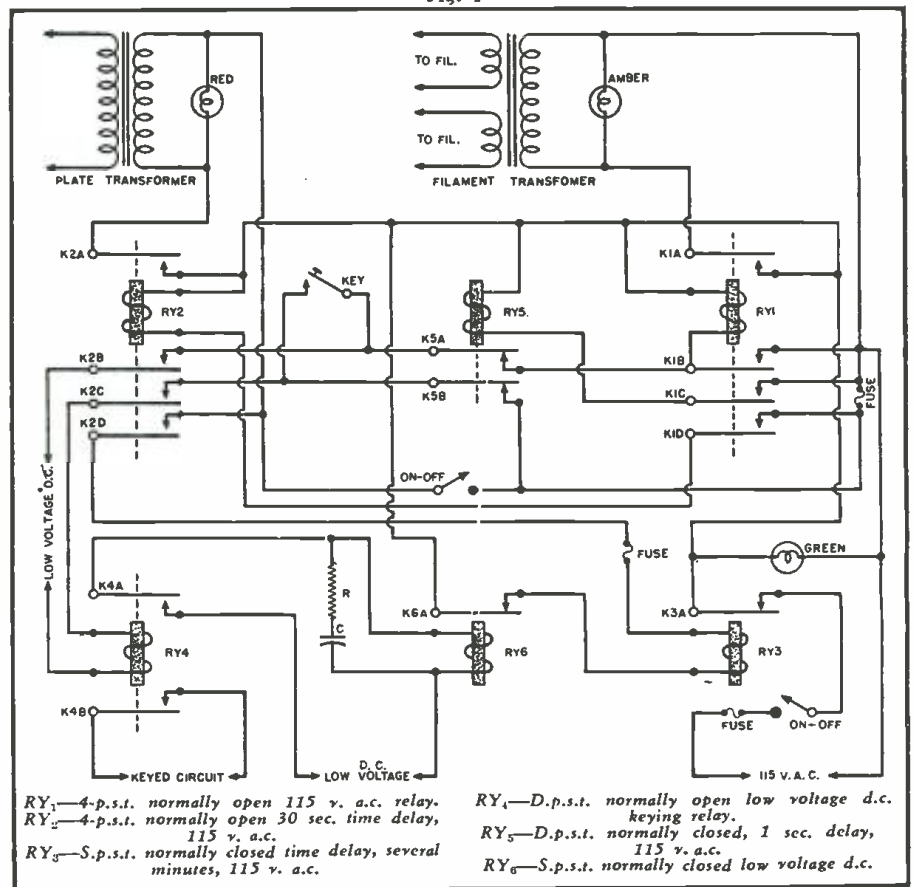 RED
TO FIL.
AMBER
TO FIL.
PLATE TRANSFORMER
FILAMENT TRANSFOMER
K2A
K1A
KEY
RY2
RY5.
RY1
K5A
K2B
K1B
K2C
K5B
K1C
FUSE
K2D
K1D
ON-OFF
LOW VOLTAGE D.C.
FUSE
GREEN
K4A
R
K6A
K3A
C
RY4
RY6
RY3
K4B
FUSE
ON-OFF
KEYED CIRCUIT
D.C.
LOW VOLTAGE
115 V. A.C.
RY1—4-p.s.t. normally open 115 v. a.c. relay.
RY2—4-p.s.t. normally open 30 sec. time delay,
115 v. a.c.
RY3—S.p.s.t. normally closed time delay, several
minutes, 115 v. a.c.
RY4—D.p.s.t. normally open low voltage d.c.
keying relay.
RY5—D.p.s.t. normally closed, 1 sec. delay,
115 v. a.c.
RY6—S.p.s.t. normally closed low voltage d.c.